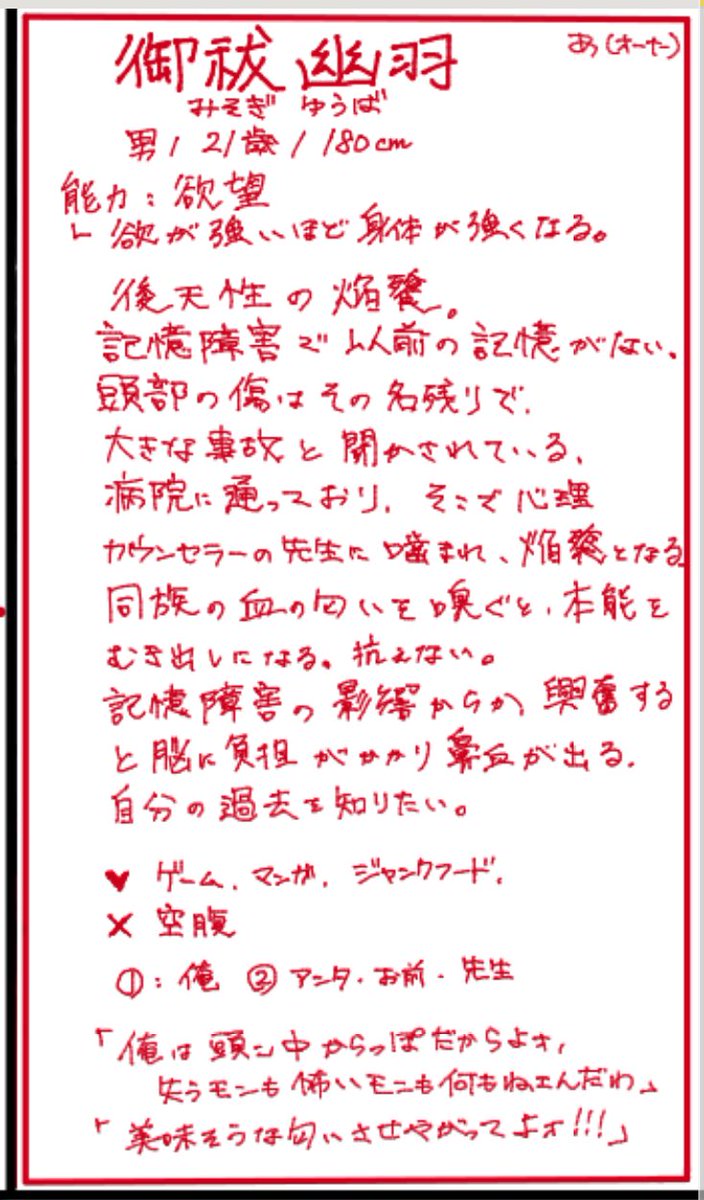 御祓 幽羽
あぅ(オーナー)
みそぎ ゆうば
男 / 21歳 / 180cm
能力：欲望
└ 欲が強いほど身体が強くなる。
後天性の焔。
記憶障害で以前の記憶がない、
頭部の傷はその名残りで、
大きな事故と聞かされている、
病院に通っており、そこで心理
カウンセラーの先生に噛まれ、焔となる
同族の血の匂いを嗅ぐと、本能を
むき出しになる。抗えない。
記憶障害の影響からか、興奮する
と脳に負担がかかり鼻血が出る、
自分の過去を知りたい。
♥ ゲーム、マンガ、ジャンクフード、
× 空腹
①：俺 ② アンタ・お前・先生
「俺は頭ン中からっぽだからよォ、
失うモンも怖いモンも何もねェんだわ」
「美味そうな匂いさせやがってよォ!!!」